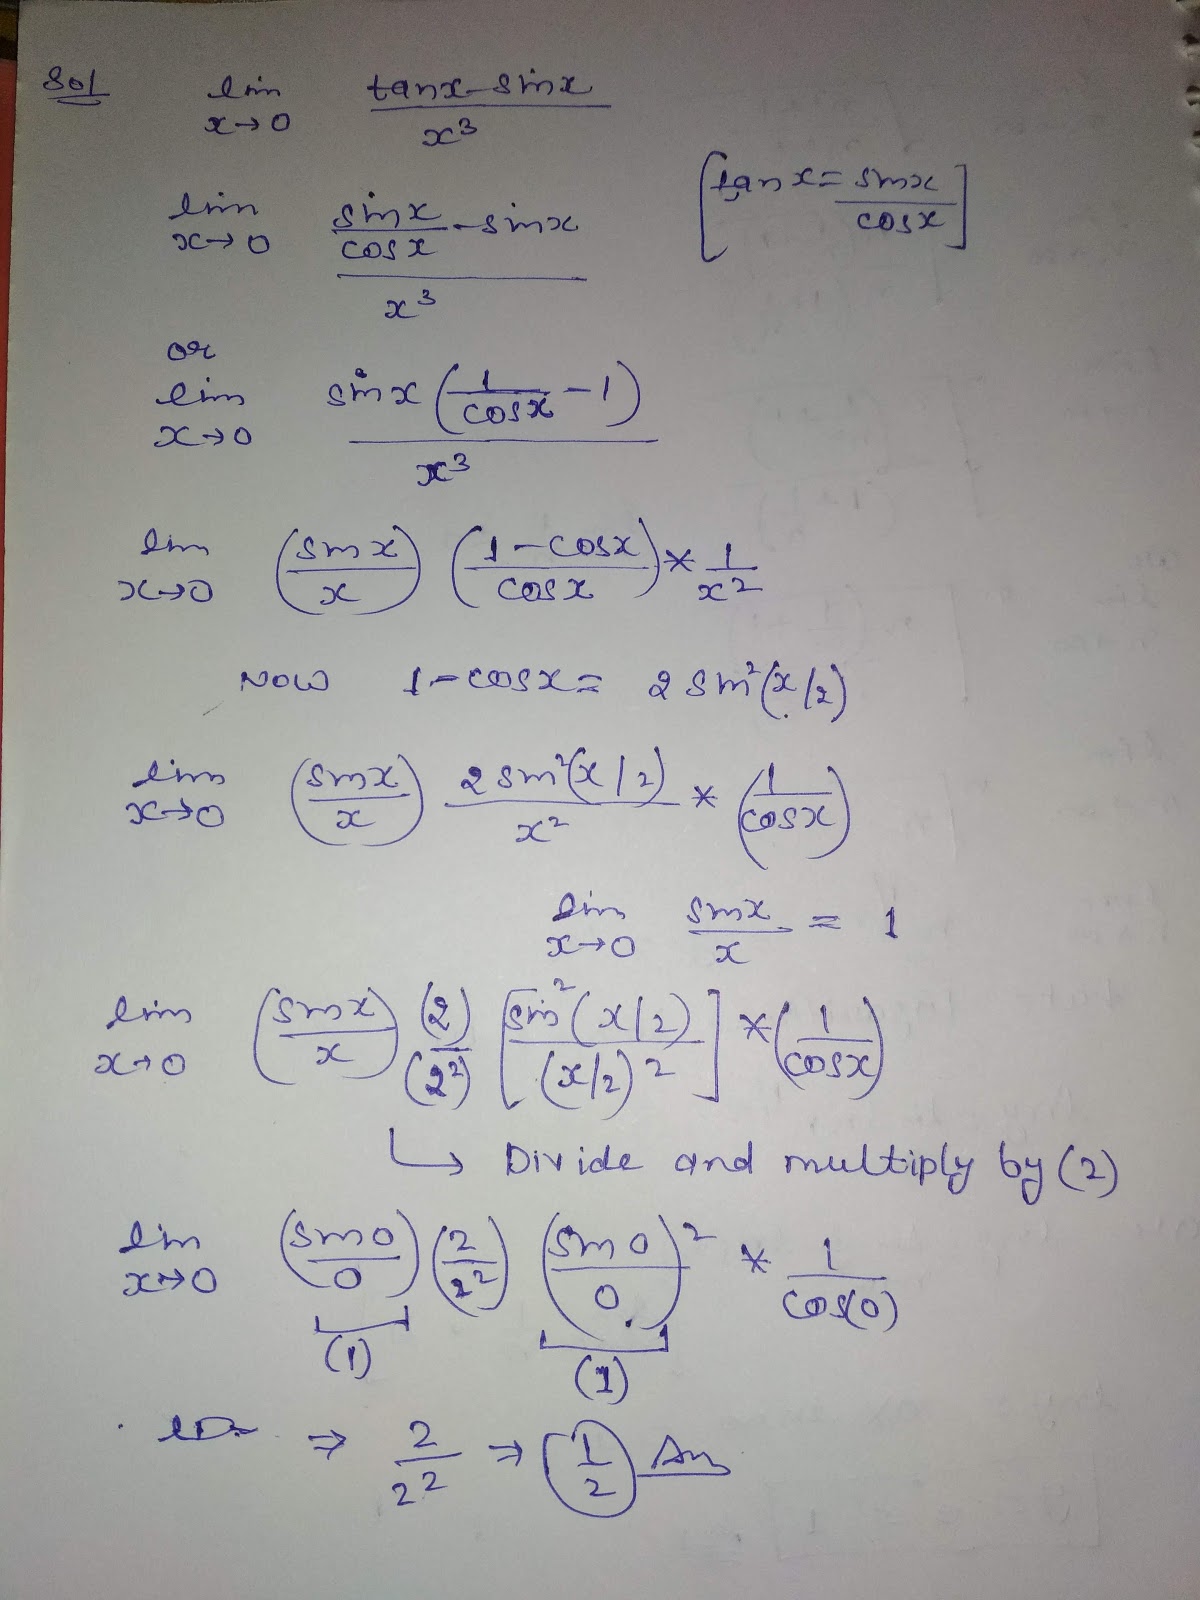 Sol lim x→0 (tanx-sinx)/x³
lim x→0 (sinx/cosx - sinx)/x³ [tanx = sinx/cosx]
or
lim x→0 sinx(1/cosx - 1)/x³
lim x→0 (sinx/x) ((1-cosx)/cosx) * 1/x²
NOW 1-cosx = 2 sin²(x/2)
lim x→0 (sinx/x) 2 sin²(x/2)/x² * (1/cosx)
lim x→0 sinx/x = 1
lim x→0 (sinx/x) (2)/(2²) [sin²(x/2)/(x/2)²] * (1/cosx)
↳ Divide and multiply by (2)
lim x→0 (sin0/0) (2/2²) (sin0/0)² * 1/cos(0)
(1) (1)
⇒ 2/2² ⇒ 1/2 Ans